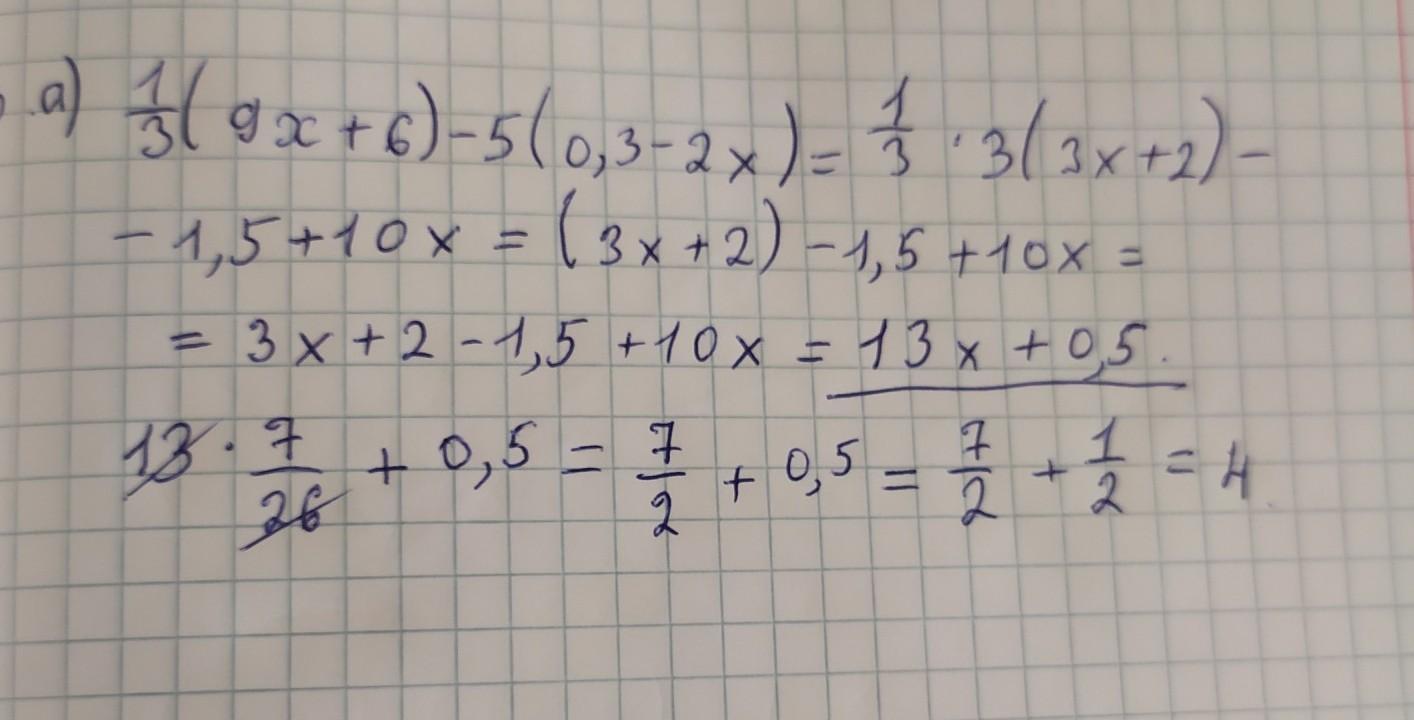 а) 1/3(9x+6)-5(0,3-2x)=1/3·3(3x+2)-
-1,5+10x=(3x+2)-1,5+10x=
=3x+2-1,5+10x=13x+0,5.
13·7/26+0,5=7/2+0,5=7/2+1/2=4